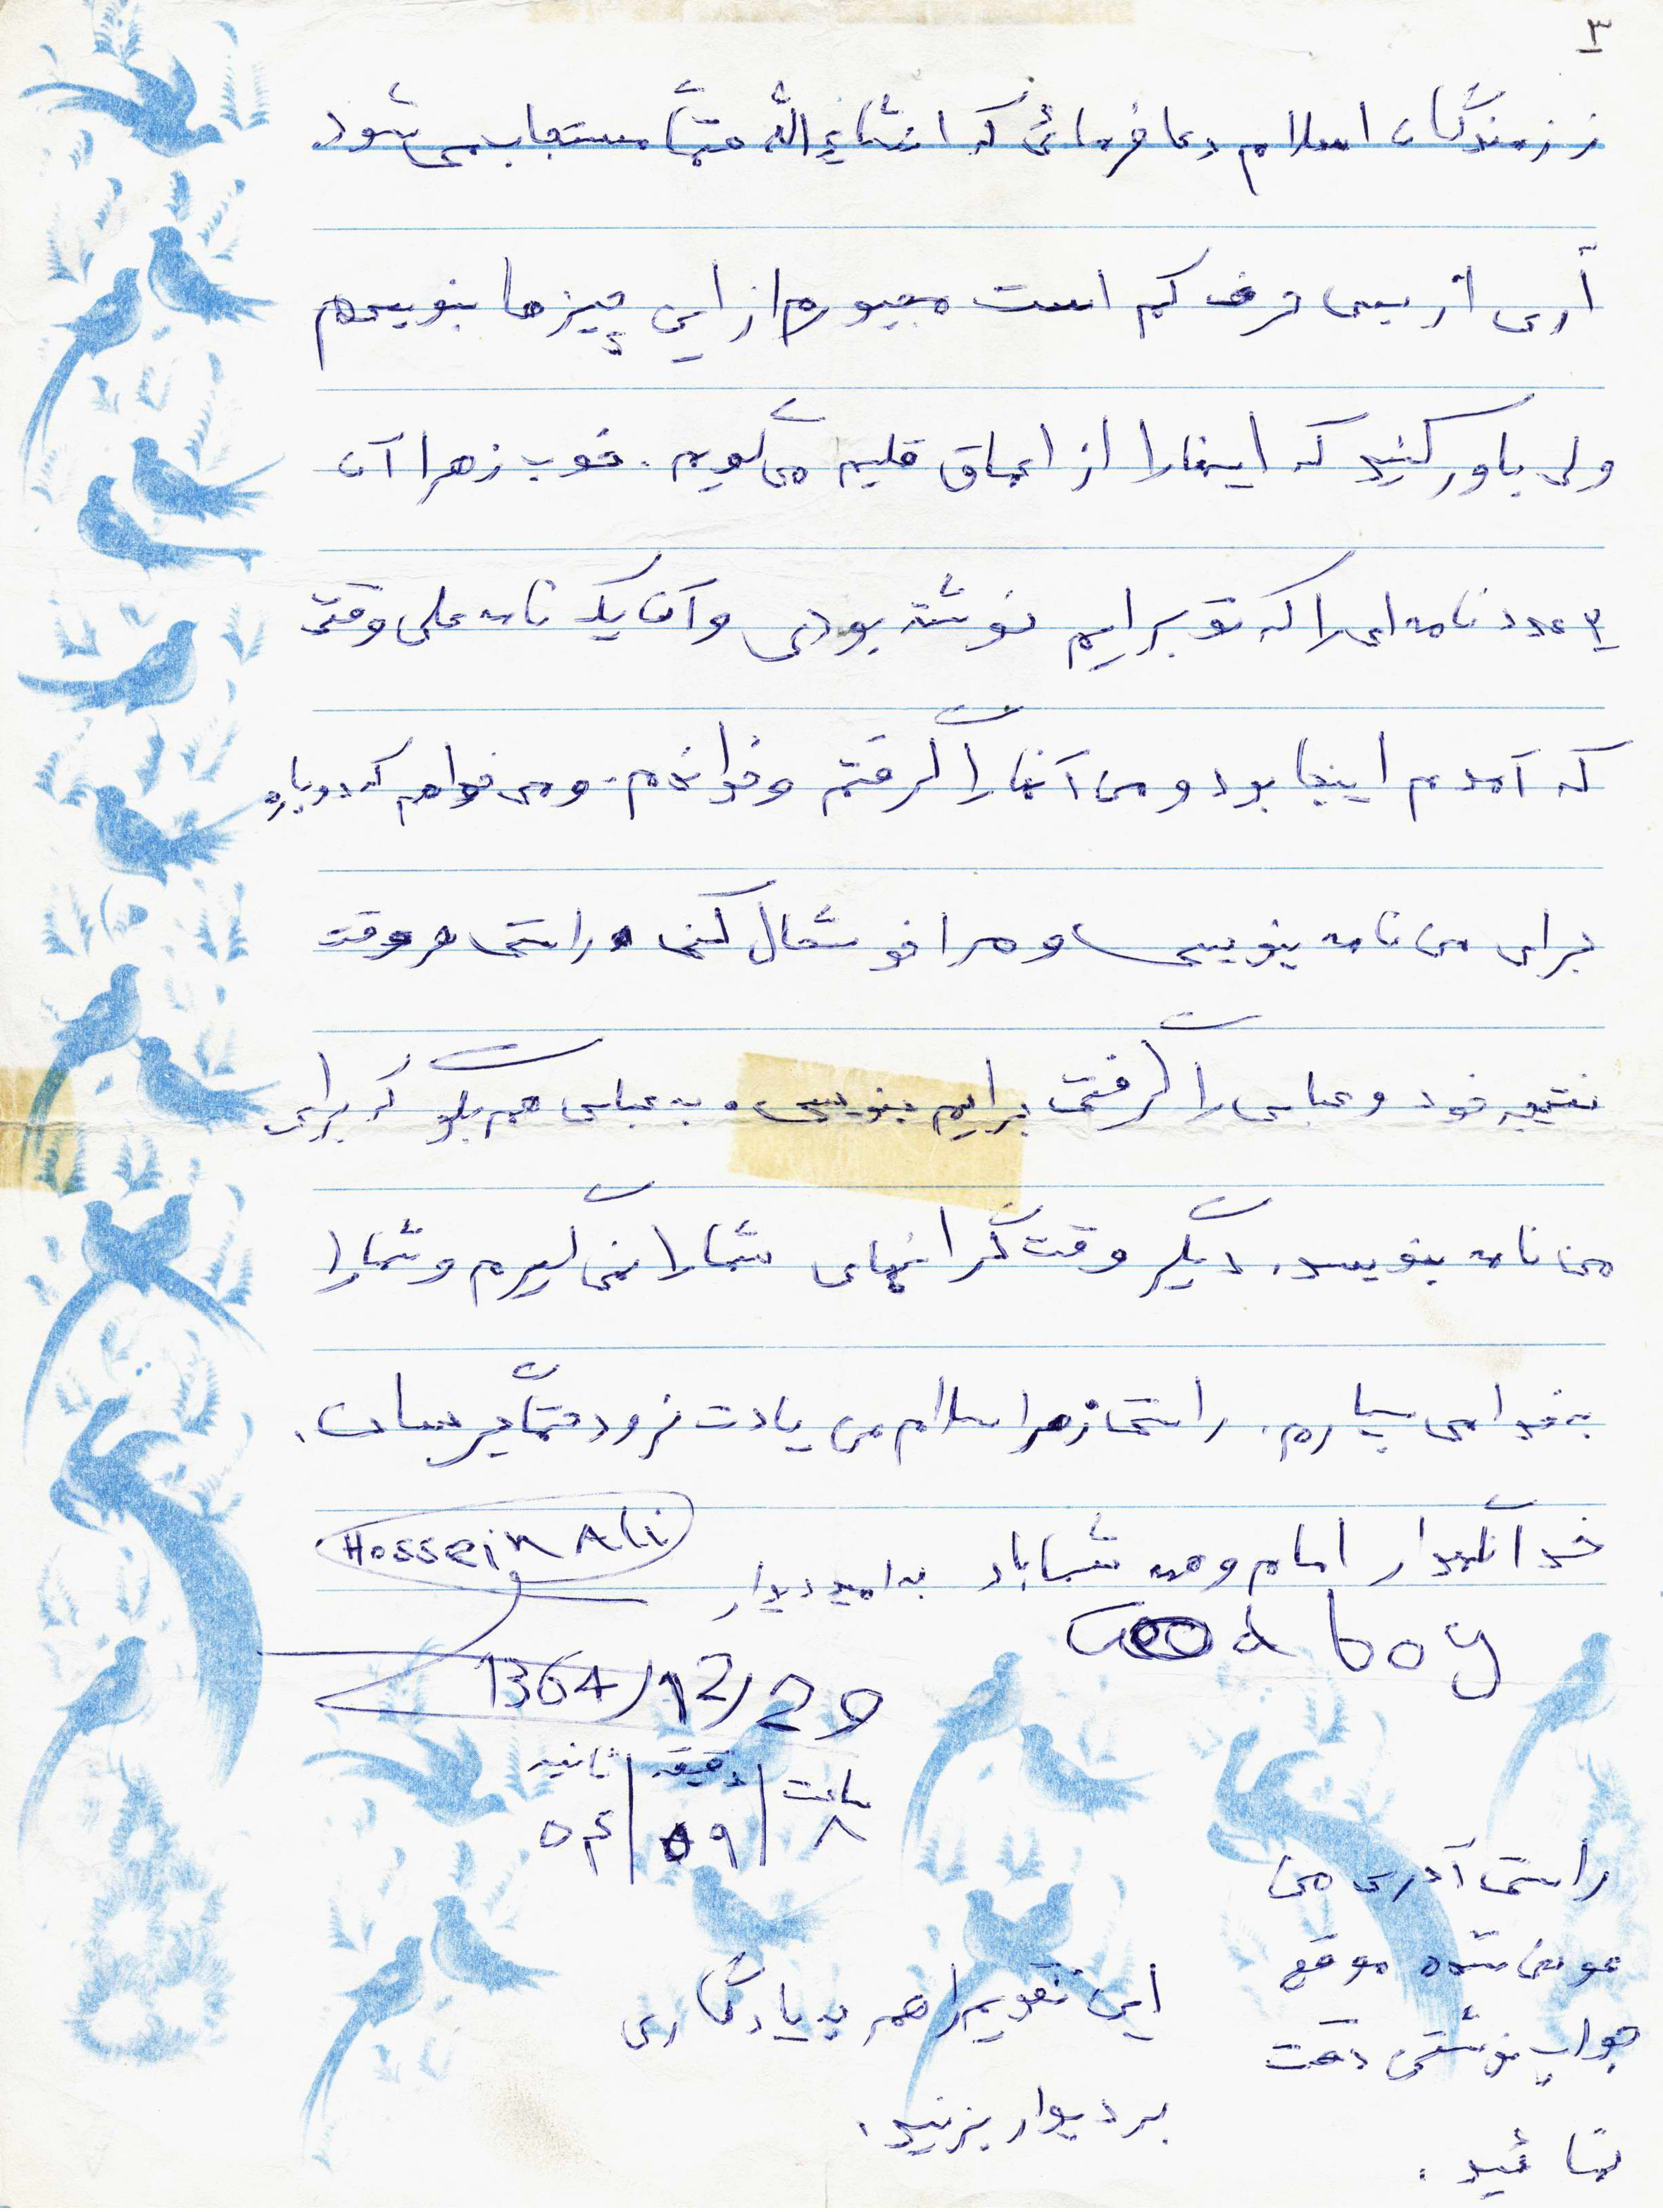 ۳
رزمندگان اسلام دعا فرمائی که انشاءالله حتماً مستجاب می شود
آری از بسی حرف کم است مجبورم از این چیزها بنویسم
ولی باور کنید که اینها را از اعماق قلبم می گویم. خوب زهرا آن
۳ عدد نامه ای را که تو برایم نوشته بودی و آن یک نامه علی وقتی
که آمدم اینجا بود و من آنها را گرفتم و خواندم. و می خواهم که دوباره
برای من نامه بنویسی و مرا خوشحال کنی. راستی هر وقت
نتیجه خود و عباس را گرفتی برایم بنویسی. به عباس هم بگو که برای
من نامه بنویسد. دیگر وقت گرانبهای شما را نمی گیرم و شما را
به خدا می سپارم. راستی زهرا سلام من یادت نرود حتماً برسان.
خدا نگهدار امام و همه شما باد به امید دیدار Hossein Ali
Good boy
1364/12/29
ساعت | دقیقه | ثانیه
۸ | ۵۹ | ۵۴
راستی آدرس من
عوض شده موقع
جواب نوشتن دقت
نمائید.
این تقویم را هم به یادگاری
بر دیوار بزنید.